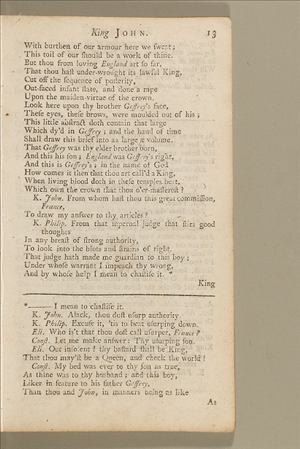 King JOHN. 13
With burthen of our armour here we sweat;
This toil of our should be a work of thine.
But thou from loving England art so far,
That thou hast under-wrought its lawful King,
Cut off the sequence of posterity,
Out-faced infant state, and done a rape
Upon the maiden-virtue of the crown.
Look here upon thy brother Geffrey's face,
These eyes, these brows, were moulded out of his;
This little abstract doth contain that large
Which dy'd in Geffrey; and the hand of time
Shall draw this brief into as large a volume.
That Geffrey was thy elder brother born,
And this his son; England was Geffrey's right,
And this is Geffrey's; in the name of God
How comes it then that thou art call'd a King,
When living blood doth in these temples beat,
Which own the crown that thou o'er-masterest?
K. John. From whom hast thou this great commission,
France,
To draw my answer to thy articles?
K. Philip. From that supernal judge that stirs good
thoughts
In any breast of strong authority,
To look into the blots and stains of right.
That judge hath made me guardian to this boy;
Under whose warrant I impeach thy wrong,
And by whose help I mean to chastise it. *
King
*—— I mean to chastise it.
K. John. Alack, thou dost usurp authority.
K. Philip. Excuse it, 'tis to beat usurping down.
Eli. Who is't that thou dost call usurper, France?
Const. Let me make answer: Thy usurping son.
Eli. Out insolent! thy bastard shall be King,
That thou may'st be a Queen, and check the world!
Const. My bed was ever to thy son as true,
As thine was to thy husband; and this boy,
Liker in feature to his father Geffrey,
Than thou and John, in manners being as like
As